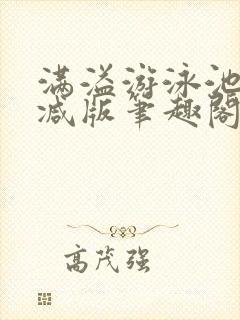 满溢游泳池
减版笔趣阁
高茂强